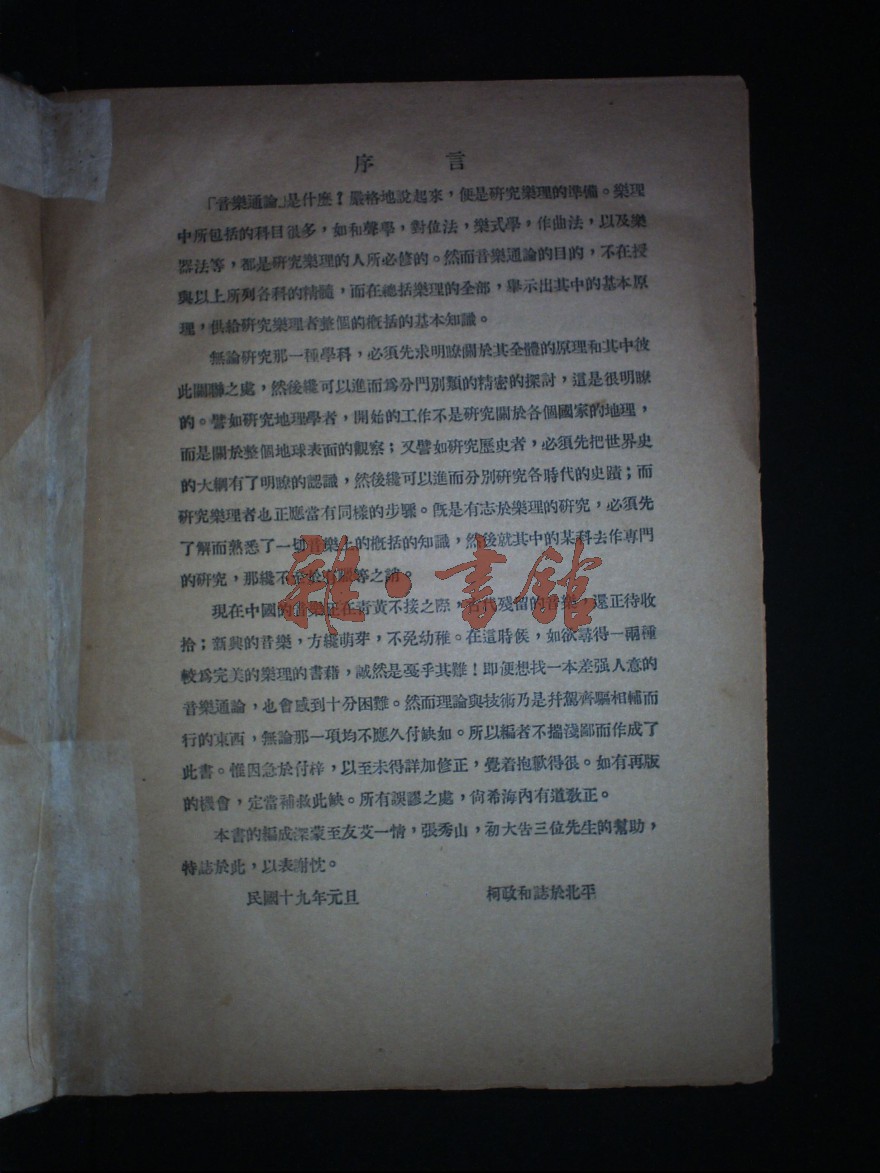 序言
「音樂通論」是什麼？嚴格地說起來，便是硏究樂理的準備。樂理
中所包括的科目很多，如和聲學，對位法，樂式學，作曲法，以及樂
器法等，都是硏究樂理的人所必修的。然而音樂通論的目的，不在授
與以上所列各科的精髓，而在總括樂理的全部，舉示出其中的基本原
理，供給硏究樂理者整個的槪括的基本知識。
無論硏究那一種學科，必須先求明瞭關於其全體的原理和其中彼
此關聯之處，然後纔可以進而爲分門別類的精密的探討，這是很明瞭
的。譬如硏究地理學者，開始的工作不是硏究關於各個國家的地理，
而是關於整個地球表面的觀察；又譬如硏究歷史者，必須先把世界史
的大綱有了明瞭的認識，然後纔可以進而分別硏究各時代的史蹟；而
硏究樂理者也正應當有同樣的步驟。旣是有志於樂理的硏究，必須先
了解而熟悉了一切音樂上的槪括的知識，然後就其中的某科去作專門
的硏究，那纔不至於有躐等之誚。
現在中國的音樂正在靑黃不接之際，古代殘留的音樂，還正待收
拾；新興的音樂，方纔萌芽，不免幼稚。在這時候，如欲尋得一兩種
較爲完美的樂理的書藉，誠然是戞乎其難！即便想找一本差强人意的
音樂通論，也會感到十分困難。然而理論與技術乃是幷駕齊驅相輔而
行的東西，無論那一項均不應久付缺如。所以編者不揣淺鄙而作成了
此書。惟因急於付梓，以至未得詳加修正，覺着抱歉得很。如有再版
的機會，定當補救此缺。所有誤謬之處，尙希海內有道敎正。
本書的編成深蒙至友艾一情，張秀山，初大吿三位先生的幫助，
特誌於此，以表謝忱。
民國十九年元旦　柯政和誌於北平
雜·書館